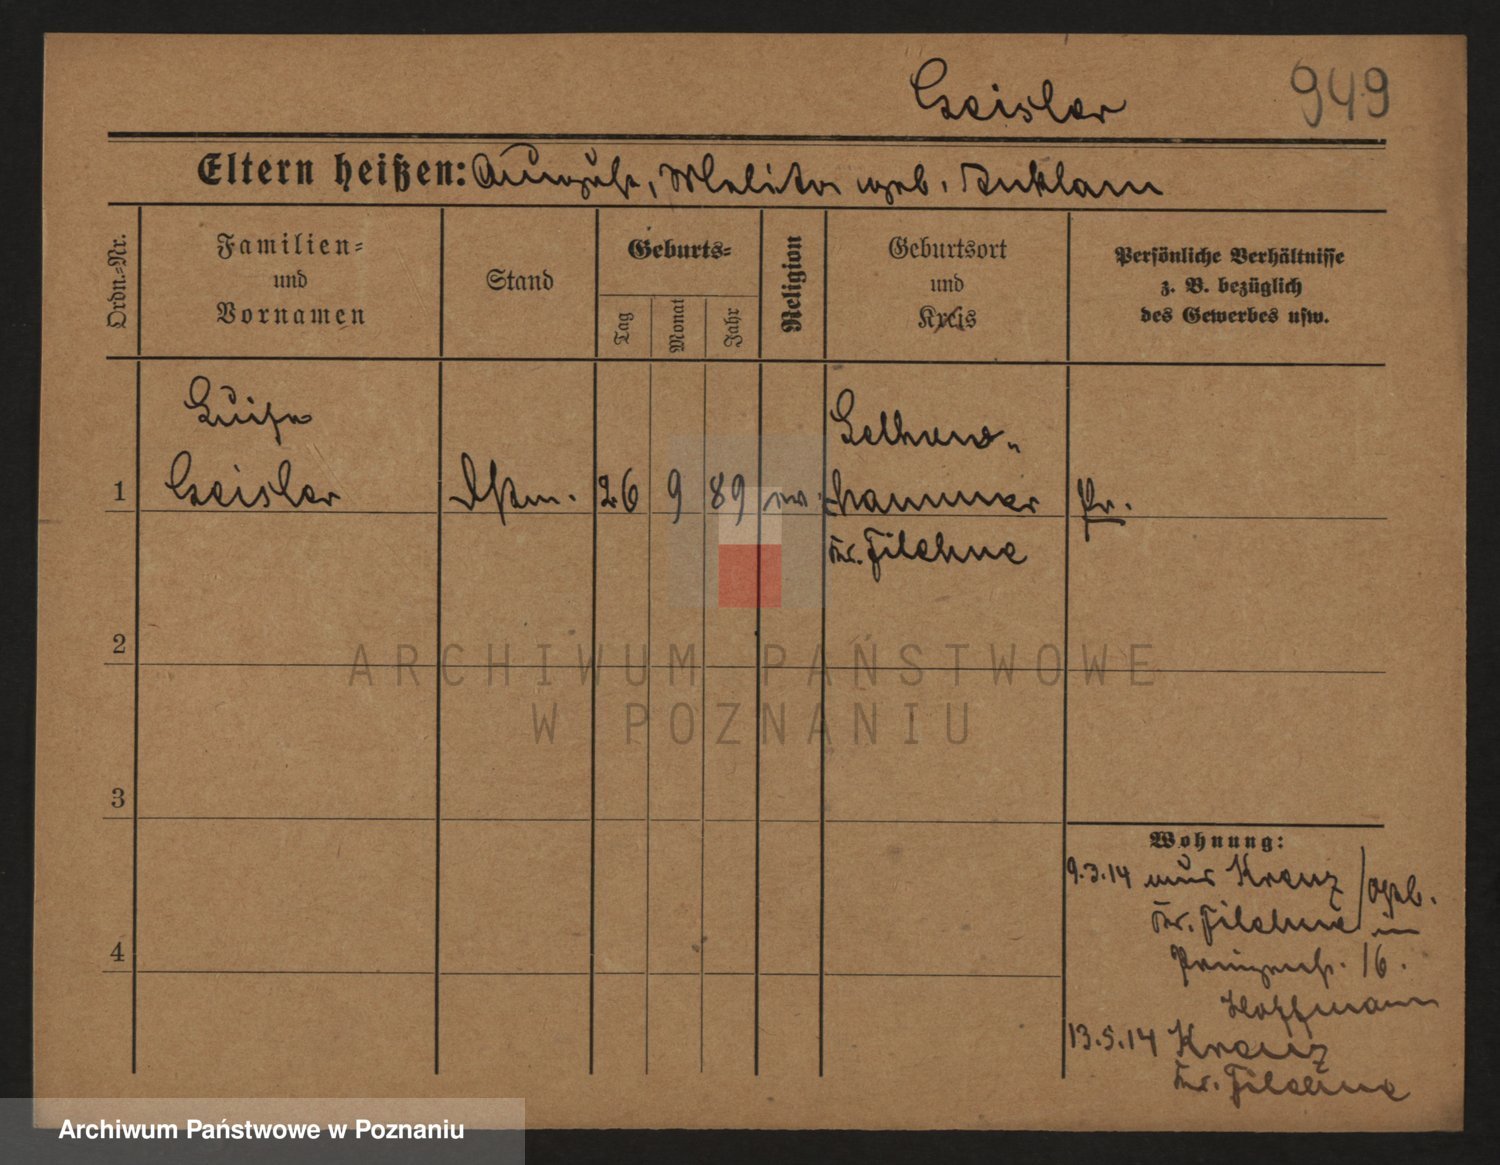 Geisler 949
Eltern heißen: August, Melitta geb. Anklam
Ordn.-Nr.
Familien-
und
Vornamen
Stand
Geburts-
Tag
Monat
Jahr
Religion
Geburtsort
und
Kreis
Persönliche Verhältnisse
z. B. bezüglich
des Gewerbes usw.
1
Luise
Geisler
Dstm.
26
9
89
ev.
Selchow-
hammer
Kr. Filehne
Pr.
2
3
4
Wohnung:
9.3.14 aus Kreuz
Kr. Filehne
in
Prinzenstr. 16.
Hoffmann
13.5.14 Kreuz
Kr. Filehne
ARCHIWUM PAŃSTWOWE
W POZNANIU
Archiwum Państwowe w Poznaniu